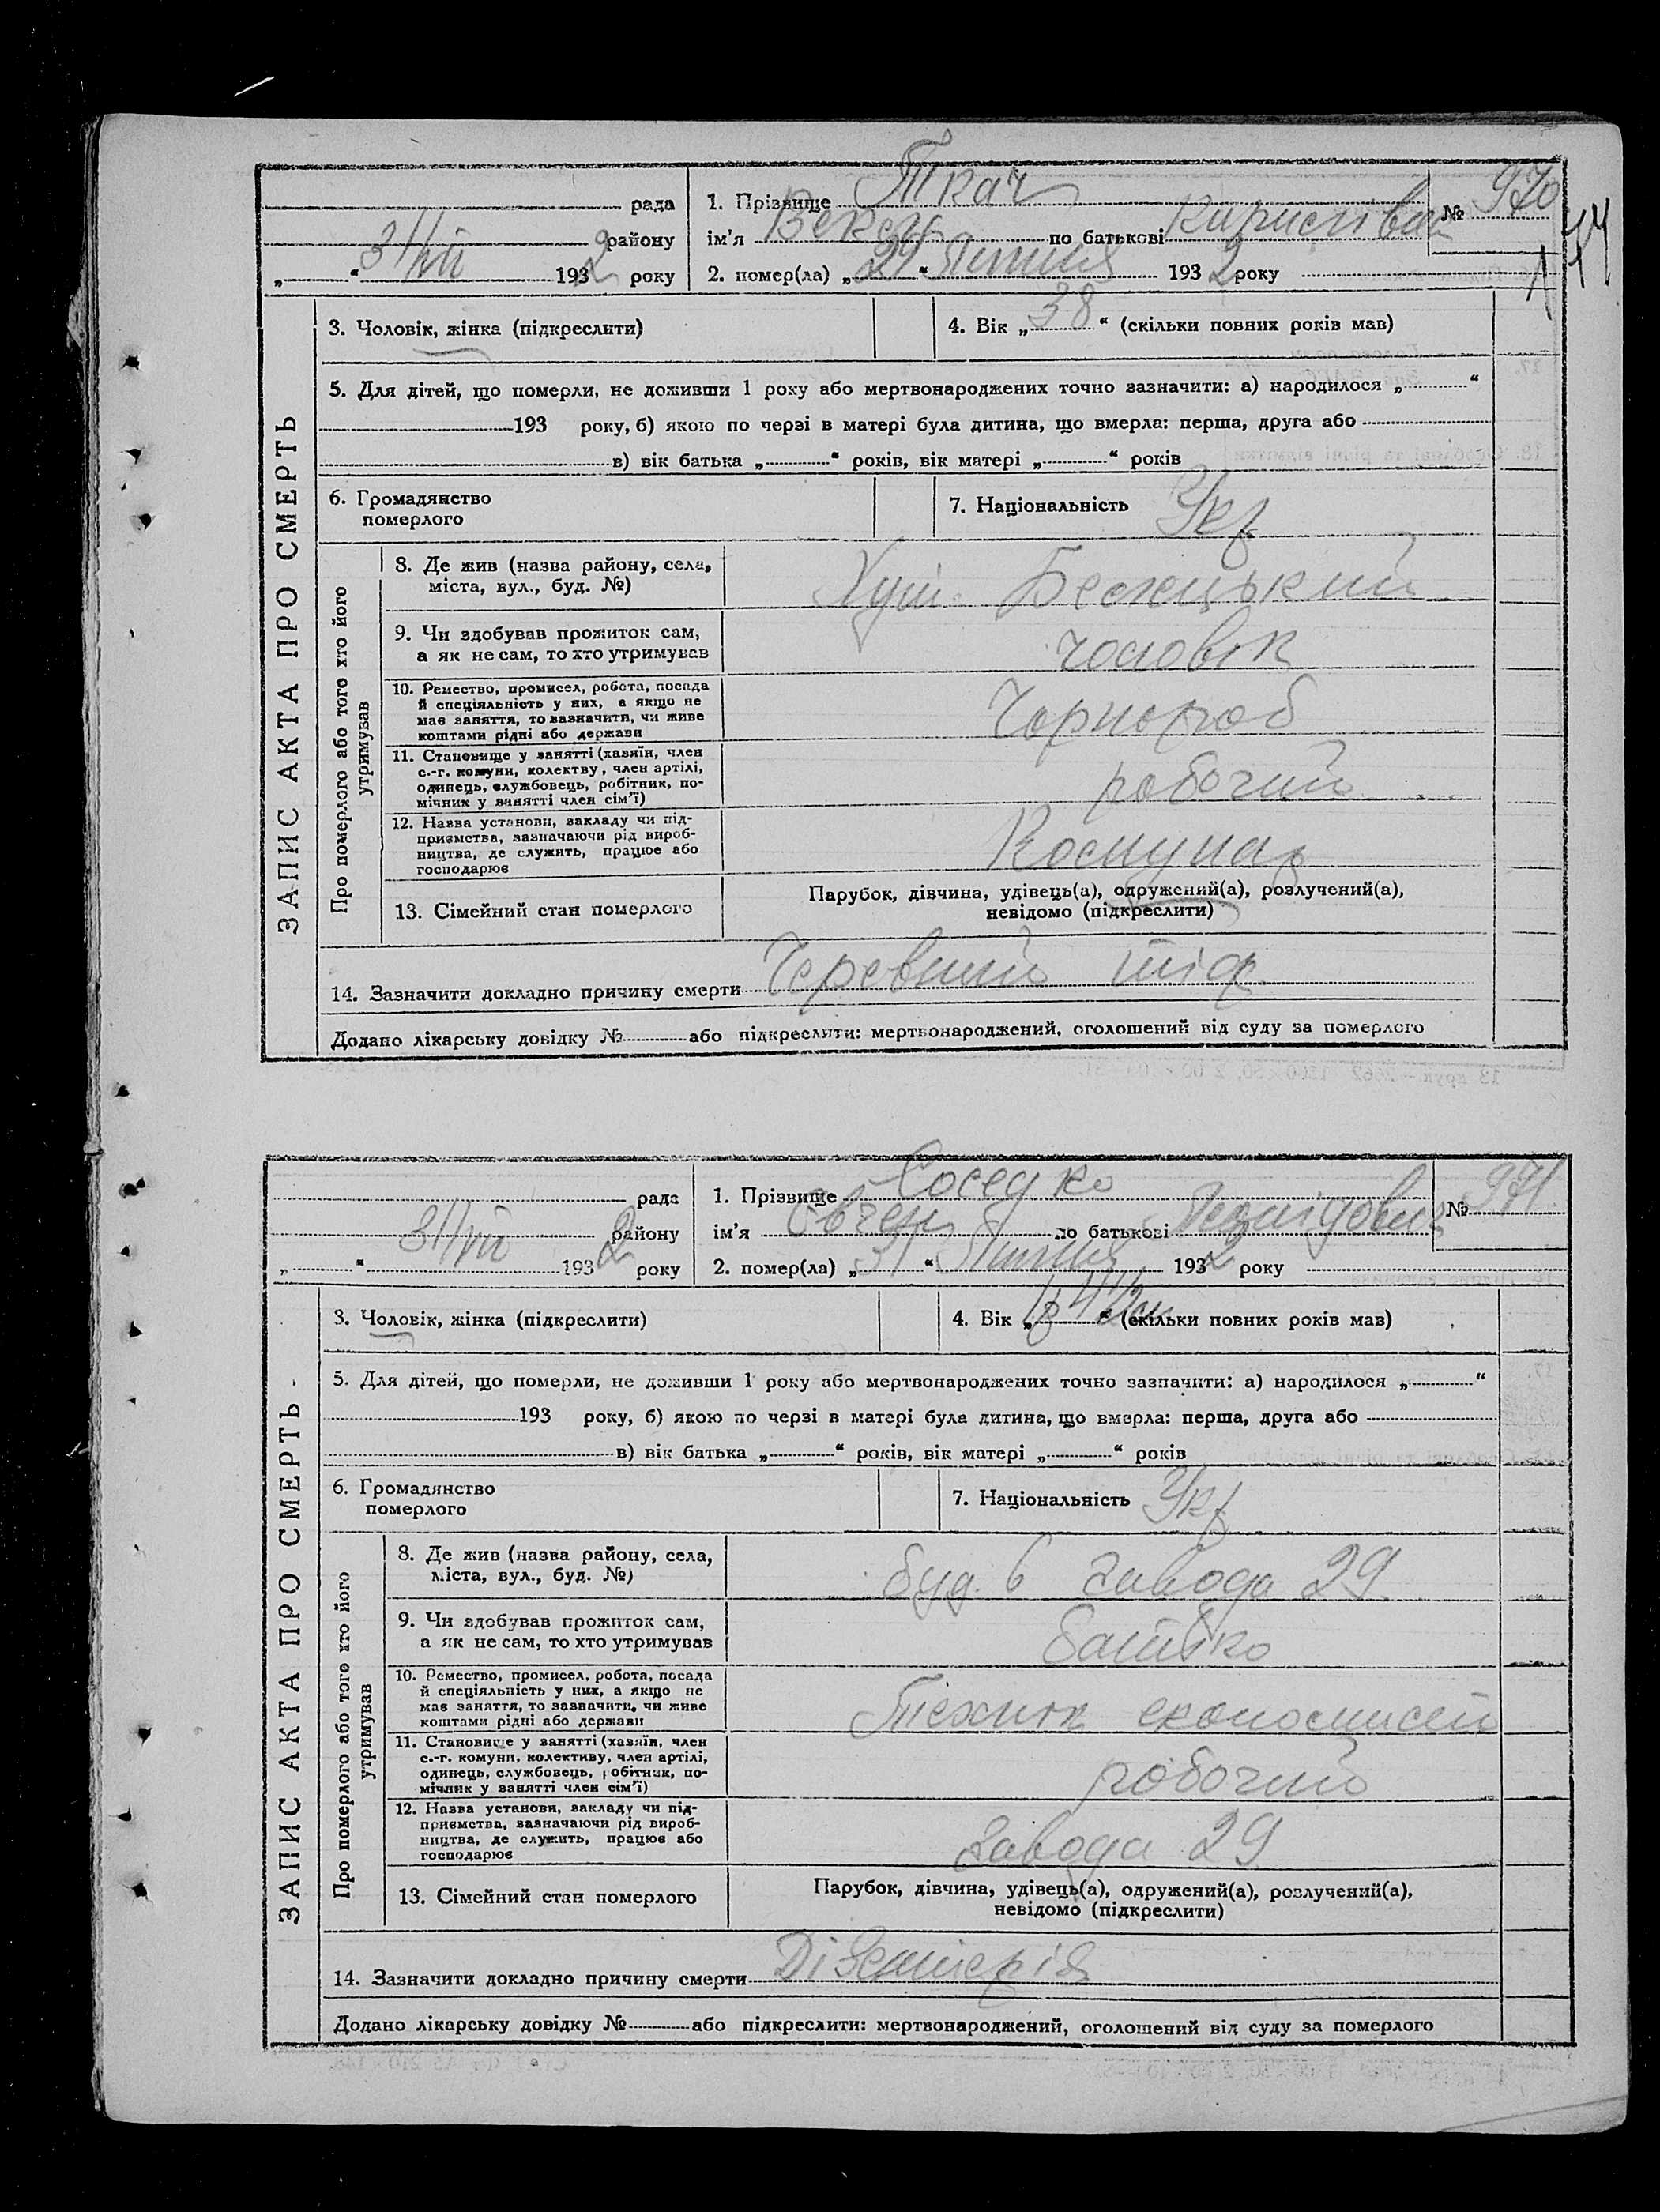 ЗАПИС АКТА ПРО СМЕРТЬ
рада
району
31/VII 1932 року
1. Прізвище Ткач
№ 970
ім'я по батькові
2. помер(ла) „29“ Липня 1932 року
3. Чоловік, жінка (підкреслити)
4. Вік „38“ (скільки повних років мав)
5. Для дітей, що померли, не доживши 1 року або мертвонароджених точно зазначити: а) народилося „ “
193 року, б) якою по черзі в матері була дитина, що вмерла: перша, друга або
в) вік батька „ “ років, вік матері „ “ років
6. Громадянство
померлого
7. Національність Укр
Про померлого або того хто його
утримував
8. Де жив (назва району, села,
міста, вул., буд. №)
Хут.
9. Чи здобував прожиток сам,
а як не сам, то хто утримував
чоловік
10. Ремество, промисел, робота, посада
й спеціяльність у них, а якщо не
має заняття, то зазначити, чи живе
коштами рідні або держави
Чорнороб
11. Становище у занятті (хазяїн, член
с.-г. комуни, колектву, член артілі,
одинець, службовець, робітник, по-
мічник у занятті член сім'ї)
робочий
12. Назва установи, закладу чи під-
приємства, зазначаючи рід вироб-
ництва, де служить, працює або
господарює
Комунар
13. Сімейний стан померлого
Парубок, дівчина, удівець(а), одружений(а), розлучений(а),
невідомо (підкреслити)
14. Зазначити докладно причину смерти Черевний тіф
Додано лікарську довідку № або підкреслити: мертвонароджений, оголошений від суду за померлого
ЗАПИС АКТА ПРО СМЕРТЬ
рада
району
31/VII 1932 року
1. Прізвище Соседко
№ 971
ім'я Євген по батькові Леонідович
2. помер(ла) „31“ Липня 1932 року
3. Чоловік, жінка (підкреслити)
4. Вік „ “ (скільки повних років мав)
5. Для дітей, що померли, не доживши 1 року або мертвонароджених точно зазначити: а) народилося „ “
193 року, б) якою по черзі в матері була дитина, що вмерла: перша, друга або
в) вік батька „ “ років, вік матері „ “ років
6. Громадянство
померлого
7. Національність Укр
Про померлого або того хто його
утримував
8. Де жив (назва району, села,
міста, вул., буд. №)
буд. 6 завода 29
9. Чи здобував прожиток сам,
а як не сам, то хто утримував
батько
10. Ремество, промисел, робота, посада
й спеціяльність у них, а якщо не
має заняття, то зазначити, чи живе
коштами рідні або держави
Технік економист
11. Становище у занятті (хазяїн, член
с.-г. комуни, колективу, член артілі,
одинець, службовець, робітник, по-
мічник у занятті член сім'ї)
робочий
12. Назва установи, закладу чи під-
приємства, зазначаючи рід вироб-
ництва, де служить, працює або
господарює
завода 29
13. Сімейний стан померлого
Парубок, дівчина, удівець(а), одружений(а), розлучений(а),
невідомо (підкреслити)
14. Зазначити докладно причину смерти Дізентерія
Додано лікарську довідку № або підкреслити: мертвонароджений, оголошений від суду за померлого